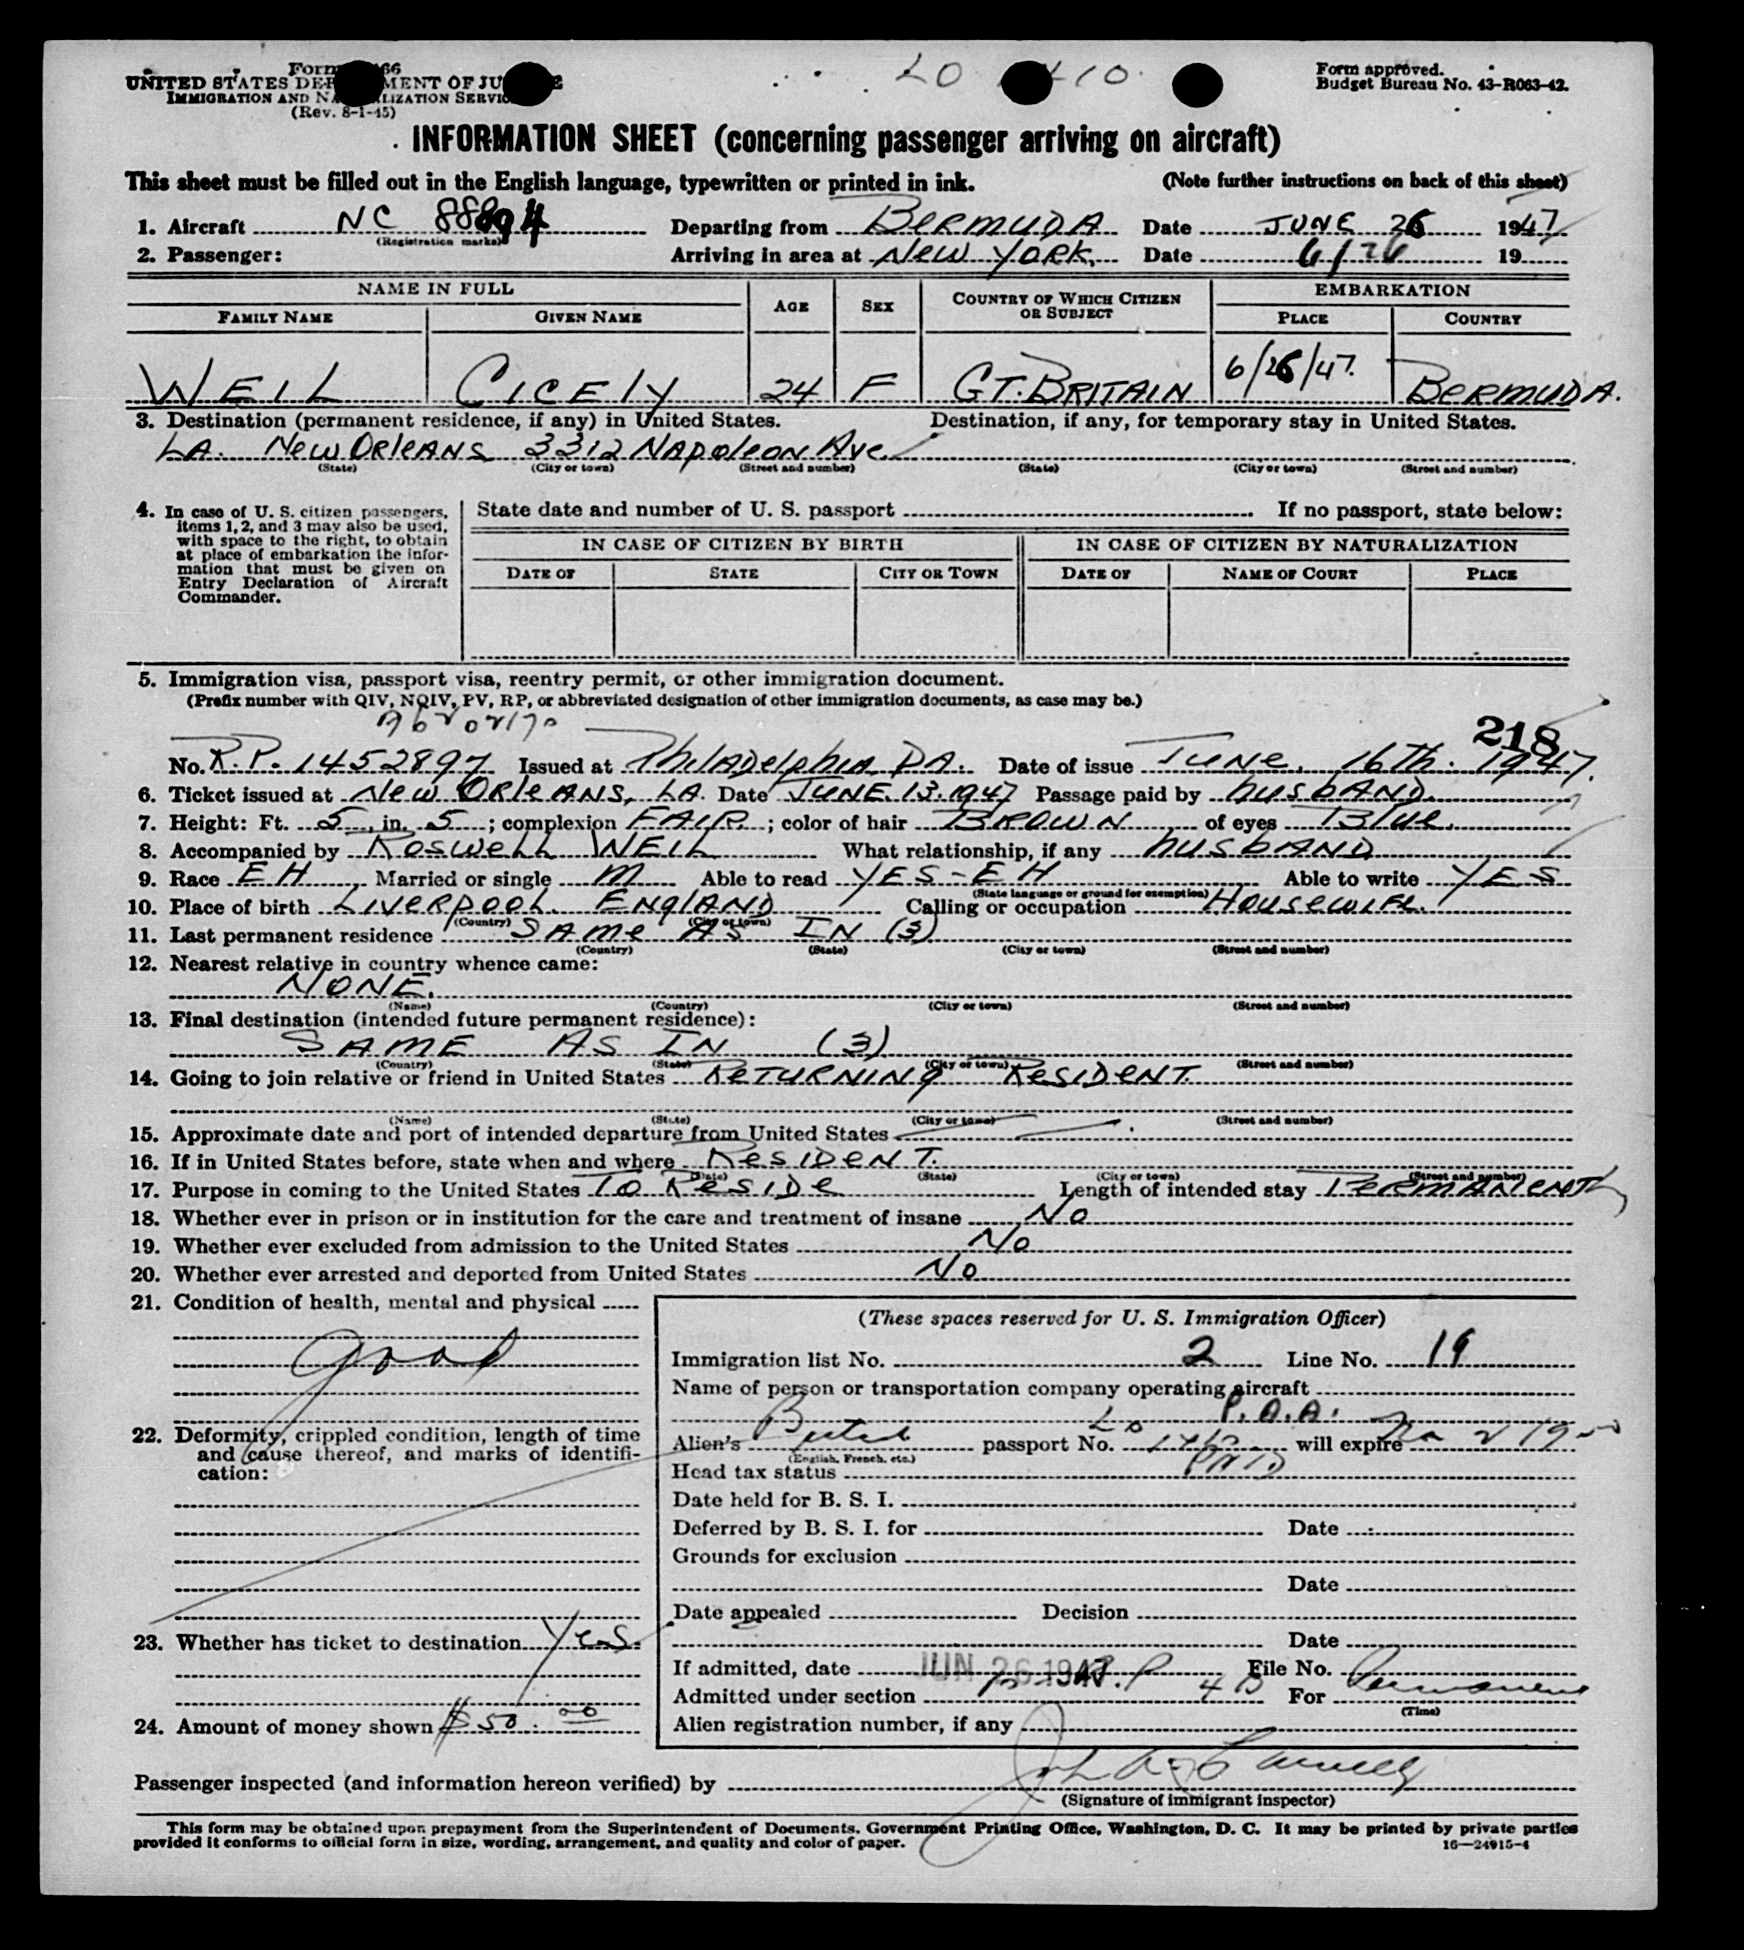 Form 66
UNITED STATES DEPARTMENT OF JUSTICE
IMMIGRATION AND NATURALIZATION SERVICE
(Rev. 8-1-45)
LO 410
Form approved.
Budget Bureau No. 43-R063-42.
INFORMATION SHEET (concerning passenger arriving on aircraft)
This sheet must be filled out in the English language, typewritten or printed in ink. (Note further instructions on back of this sheet)
1. Aircraft NC Departing from BERMUDA Date JUNE 26 1947
(Registration marks)
2. Passenger: Arriving in area at NEW YORK. Date 6/26 19
NAME IN FULL AGE SEX COUNTRY OF WHICH CITIZEN OR SUBJECT EMBARKATION
FAMILY NAME GIVEN NAME PLACE COUNTRY
WEIL CICELY 24 F GT. BRITAIN 6/26/47. BERMUDA.
3. Destination (permanent residence, if any) in United States. Destination, if any, for temporary stay in United States.
LA. NEW ORLEANS 3312 NAPOLEON AVE.
(State) (City or town) (Street and number) (State) (City or town) (Street and number)
4. In case of U. S. citizen passengers,
items 1, 2, and 3 may also be used,
with space to the right, to obtain
at place of embarkation the infor-
mation that must be given on
Entry Declaration of Aircraft
Commander.
State date and number of U. S. passport If no passport, state below:
IN CASE OF CITIZEN BY BIRTH IN CASE OF CITIZEN BY NATURALIZATION
DATE OF STATE CITY OR TOWN DATE OF NAME OF COURT PLACE
5. Immigration visa, passport visa, reentry permit, or other immigration document.
(Prefix number with QIV, NQIV, PV, RP, or abbreviated designation of other immigration documents, as case may be.)
218
No. R.P. 1452897 Issued at PHILADELPHIA PA. Date of issue JUNE. 16TH. 1947.
6. Ticket issued at NEW ORLEANS, LA. Date JUNE. 13. 1947 Passage paid by HUSBAND.
7. Height: Ft. 5, in. 5; complexion FAIR.; color of hair BROWN of eyes BLUE.
8. Accompanied by ROSWELL WEIL What relationship, if any HUSBAND
9. Race EH, Married or single M Able to read YES-EH Able to write YES
(State language or ground for exemption)
10. Place of birth LIVERPOOL. ENGLAND Calling or occupation HOUSEWIFE.
(Country) (City or town)
11. Last permanent residence SAME AS IN (3)
(Country) (State) (City or town) (Street and number)
12. Nearest relative in country whence came:
NONE.
(Name) (Country) (City or town) (Street and number)
13. Final destination (intended future permanent residence):
SAME AS IN (3)
(Country) (State) (City or town) (Street and number)
14. Going to join relative or friend in United States RETURNING RESIDENT.
(Name) (State) (City or town) (Street and number)
15. Approximate date and port of intended departure from United States
16. If in United States before, state when and where RESIDENT.
(Date) (State) (City or town) (Street and number)
17. Purpose in coming to the United States TO RESIDE Length of intended stay PERMANENTLY
18. Whether ever in prison or in institution for the care and treatment of insane NO
19. Whether ever excluded from admission to the United States NO
20. Whether ever arrested and deported from United States NO
21. Condition of health, mental and physical
Good
22. Deformity, crippled condition, length of time
and cause thereof, and marks of identifi-
cation:
23. Whether has ticket to destination Yes.
24. Amount of money shown $50.00
(These spaces reserved for U. S. Immigration Officer)
Immigration list No. 2 Line No. 19
Name of person or transportation company operating aircraft
P.A.A.
Alien's British passport No. LO will expire
(English, French, etc.)
Head tax status PAID
Date held for B. S. I.
Deferred by B. S. I. for Date
Grounds for exclusion
Date
Date appealed Decision
Date
If admitted, date JUN 26 1947 File No.
Admitted under section R.P 4B For Permanent
(Time)
Alien registration number, if any
Passenger inspected (and information hereon verified) by
(Signature of immigrant inspector)
This form may be obtained upon prepayment from the Superintendent of Documents, Government Printing Office, Washington, D. C. It may be printed by private parties
provided it conforms to official form in size, wording, arrangement, and quality and color of paper. 16—24915-4